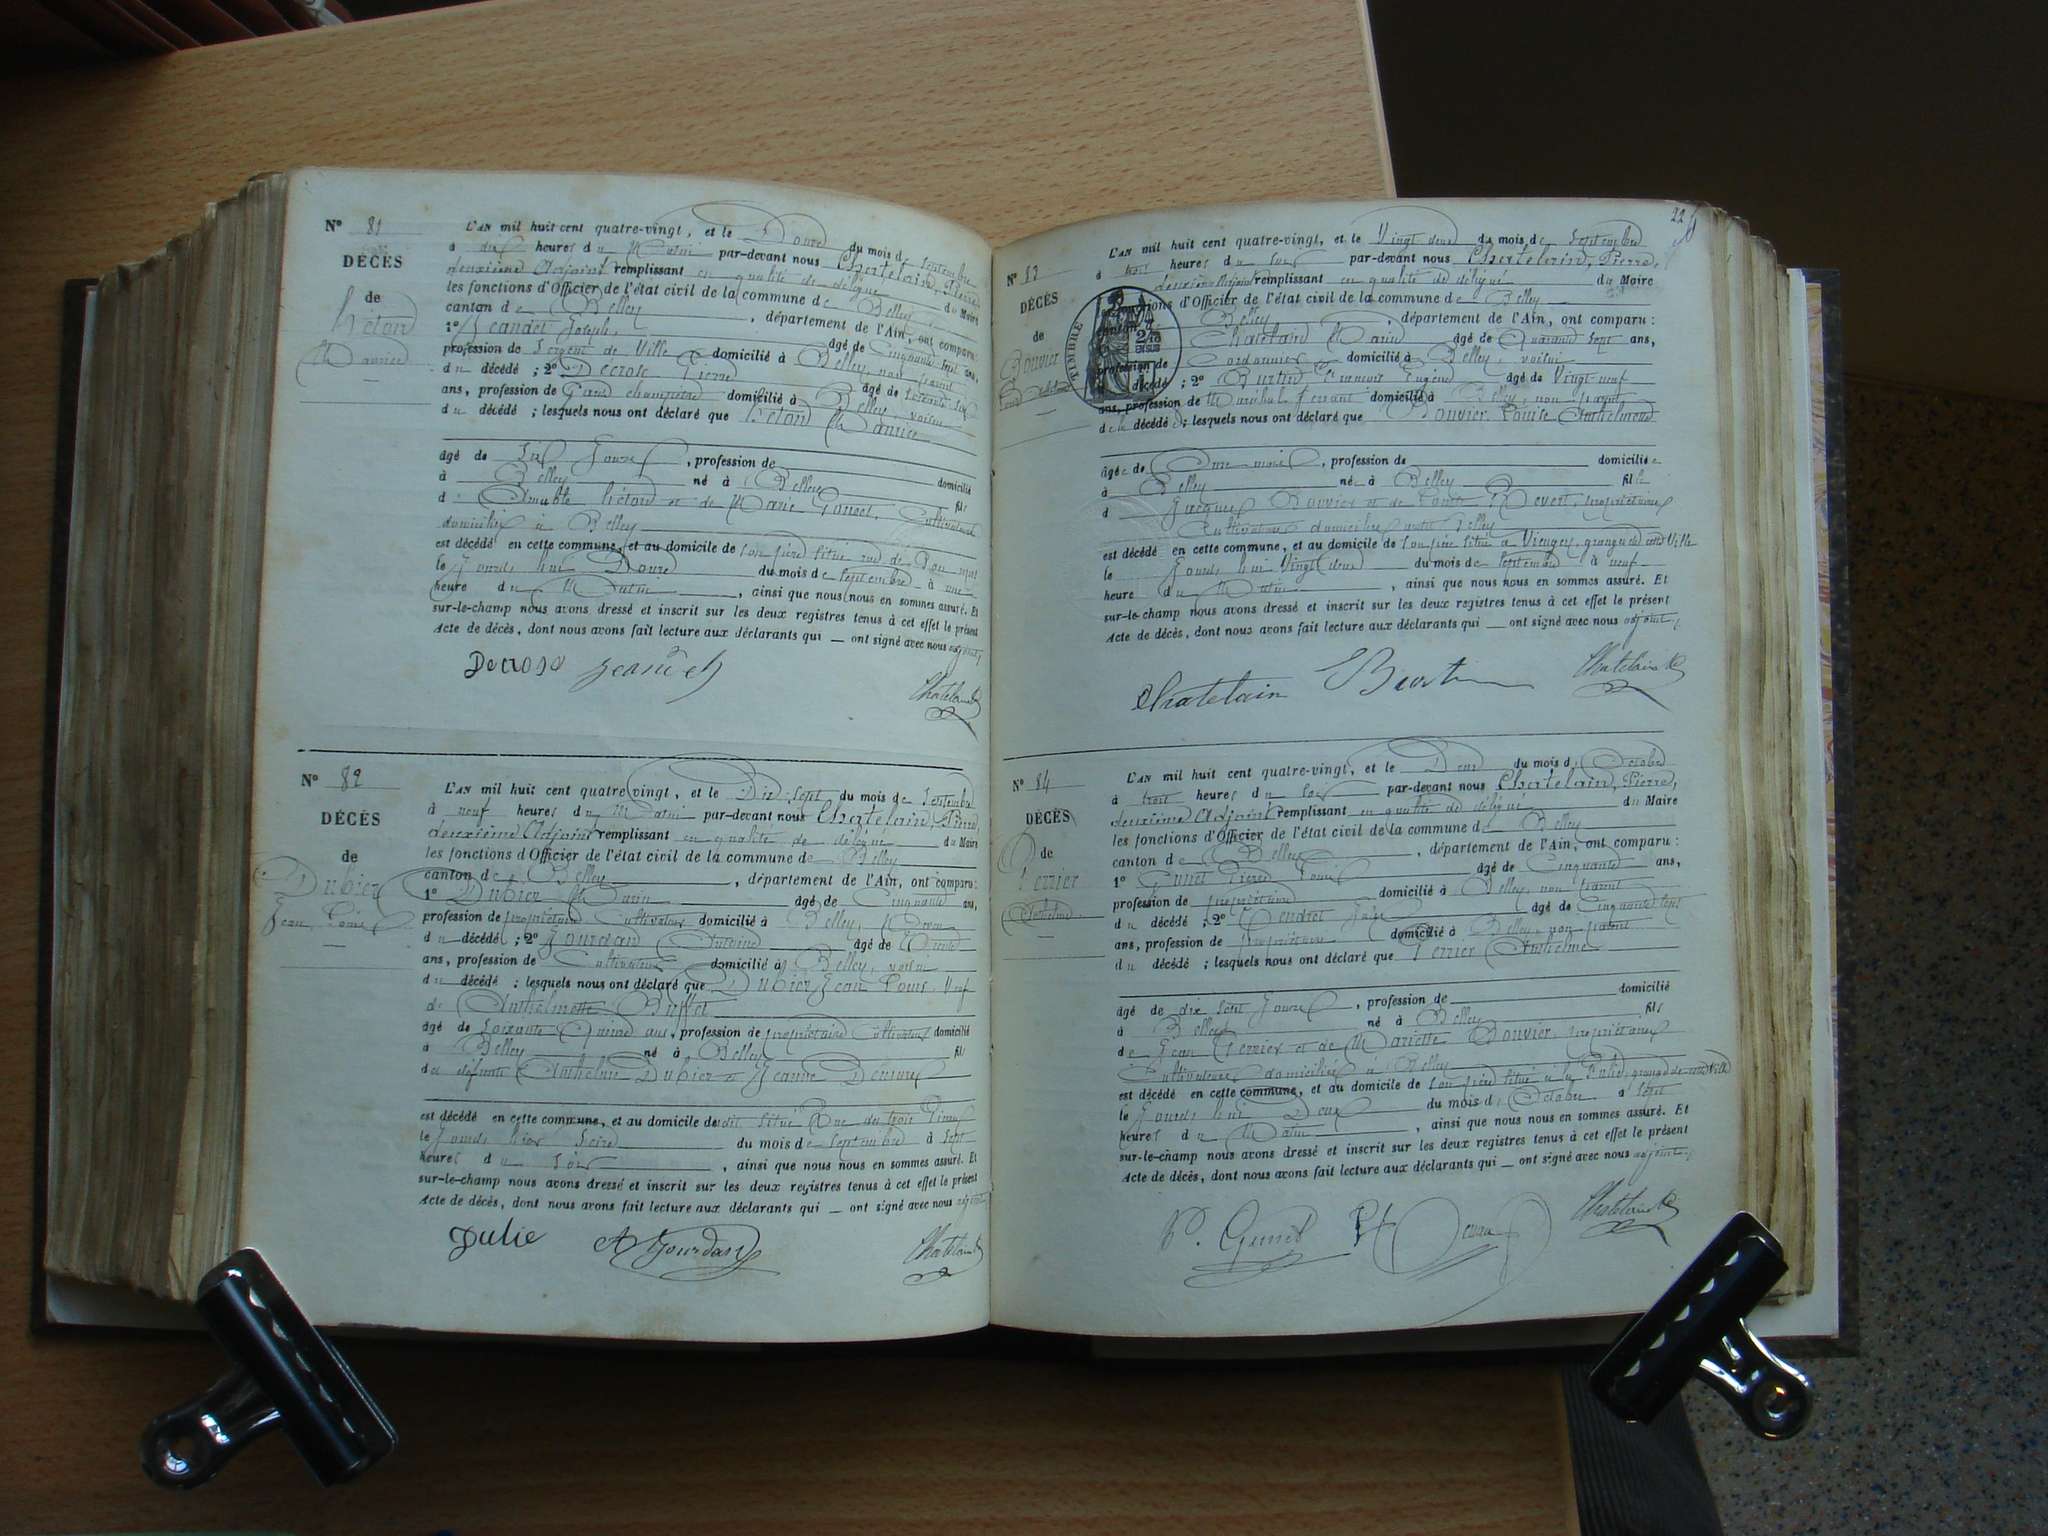 N° 81
DÉCÈS
de
Héton
Maurice
L'AN mil huit cent quatre-vingt, et le Douze du mois de Septembre
à dix heures du Matin par-devant nous Chatelain, Pierre
deuxième Adjoint remplissant en qualité de délégué du Maire
les fonctions d'Officier de l'état civil de la commune de Belley
canton de Belley, département de l'Ain, ont comparu:
1° Jeandet Joseph âgé de Cinquante sept ans,
profession de Sergent de Ville domicilié à Belley, non parent
du décédé; 2° Decrose Pierre âgé de soixante six
ans, profession de Garde champêtre domicilié à Belley, voisin
du décédé; lesquels nous ont déclaré que Héton Maurice
âgé de six Jours, profession de domicilié
à Belley né à Belley fils
d'Aimable Héton et de Marie Cultivateurs
domiciliés à Belley
est décédé en cette commune, et au domicile de son père situé rue de
le Jourd'hui Douze du mois de Septembre à une
heure du Matin, ainsi que nous nous en sommes assuré. Et
sur-le-champ nous avons dressé et inscrit sur les deux registres tenus à cet effet le présent
Acte de décès, dont nous avons fait lecture aux déclarants qui — ont signé avec nous adjoint,
Decrose Jeandet
Chatelain
N° 82
DÉCÈS
de
Dubier
Jean Louis
L'AN mil huit cent quatre-vingt, et le Dix sept du mois de Septembre
à neuf heures du Matin par-devant nous Chatelain, Pierre,
deuxième Adjoint remplissant en qualité de délégué du Maire
les fonctions d'Officier de l'état civil de la commune de Belley
canton de Belley, département de l'Ain, ont comparu:
1° Dubier Marin âgé de Cinquante ans,
profession de propriétaire Cultivateur domicilié à Belley,
du décédé; 2° Jourdan Antoine âgé de Trente
ans, profession de Cultivateur domicilié à Belley, voisin
du décédé; lesquels nous ont déclaré que Dubier Jean Louis, Veuf
de Anthelmette Buffet
âgé de soixante Quinze ans, profession de propriétaire Cultivateur domicilié
à Belley né à Belley fils
des défunts Anthelme Dubier et Jeanne
est décédé en cette commune, et au domicile dudit situé Rue des trois
le Jourd hier Seize du mois de Septembre à Sept
heures du soir, ainsi que nous nous en sommes assuré. Et
sur-le-champ nous avons dressé et inscrit sur les deux registres tenus à cet effet le présent
Acte de décès, dont nous avons fait lecture aux déclarants qui — ont signé avec nous adjoint
Julie A Jourdan
Chatelain
N° 83
DÉCÈS
de
Bouvier
TIMBRE
L'AN mil huit cent quatre-vingt, et le Vingt deux du mois de Septembre
à trois heures du soir par-devant nous Chatelain, Pierre,
deuxième Adjoint remplissant en qualité de délégué du Maire
les fonctions d'Officier de l'état civil de la commune de Belley
Belley, département de l'Ain, ont comparu:
Chatelain Marin âgé de Quarante sept ans,
profession de Cordonnier domicilié à Belley, voisin
décédé; 2° Burtin François Eugène âgé de Vingt neuf
ans, profession de Maréchal ferrant domicilié à Belley, non parent
de la décédée; lesquels nous ont déclaré que Bouvier Louise Anthelmette
âgée de Onze mois, profession de domiciliée
à Belley née à Belley fille
de Jacques Bouvier et de Louise Revert, propriétaires
Cultivateurs domiciliés audit Belley
est décédé en cette commune, et au domicile de son père situé à Vieugey, grange de cette Ville
le Jourd'hui Vingt deux du mois de Septembre à neuf
heure du Matin, ainsi que nous nous en sommes assuré. Et
sur-le-champ nous avons dressé et inscrit sur les deux registres tenus à cet effet le présent
Acte de décès, dont nous avons fait lecture aux déclarants qui — ont signé avec nous adjoint,
Chatelain Burtin Chatelain
N° 84
DÉCÈS
de
Perrier
Anthelme
L'AN mil huit cent quatre-vingt, et le Deux du mois d'Octobre
à trois heures du soir par-devant nous Chatelain, Pierre,
deuxième Adjoint remplissant en qualité de délégué du Maire
les fonctions d'Officier de l'état civil de la commune de Belley
canton de Belley, département de l'Ain, ont comparu:
1° Pierre Louis âgé de Cinquante ans,
profession de propriétaire domicilié à Belley, non parent
du décédé; 2° âgé de Cinquante sept
ans, profession de propriétaire domicilié à Belley, non parent
du décédé; lesquels nous ont déclaré que Perrier Anthelme
âgé de dix sept Jours, profession de domicilié
à Belley né à Belley fils
de Jean Perrier et de Mariette Bouvier, propriétaires
Cultivateurs domiciliés à Belley
est décédé en cette commune, et au domicile de son père situé à la grange de cette Ville
le Jourd'hui Deux du mois d'Octobre à Sept
heures du Matin, ainsi que nous nous en sommes assuré. Et
sur-le-champ nous avons dressé et inscrit sur les deux registres tenus à cet effet le présent
Acte de décès, dont nous avons fait lecture aux déclarants qui — ont signé avec nous adjoint,
Chatelain